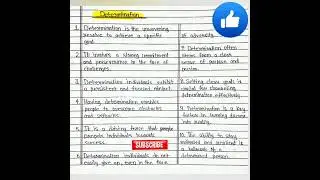 Determination
1. Determination is the unwavering
resolve to achieve a specific
goal.
2. It involves a strong commitment
and perseverance in the face of
challenges.
3. Determined individuals exhibit
a persistent and focused mindset.
4. Having determination enables
people to overcome obstacles
and setbacks.
5. It is a driving force that
individuals towards
success.
6. Determined individuals do not
easily give up, even in the face
of adversity.
7. Determination often
stems from a clear
sense of purpose and
passion.
8. Setting clear goals is
crucial for
determination effectively.
9. Determination is a key
factor in turning dreams
into reality.
10. The ability to stay
motivated and resilient is
a hallmark of a
determined person.
SUBSCRIBE